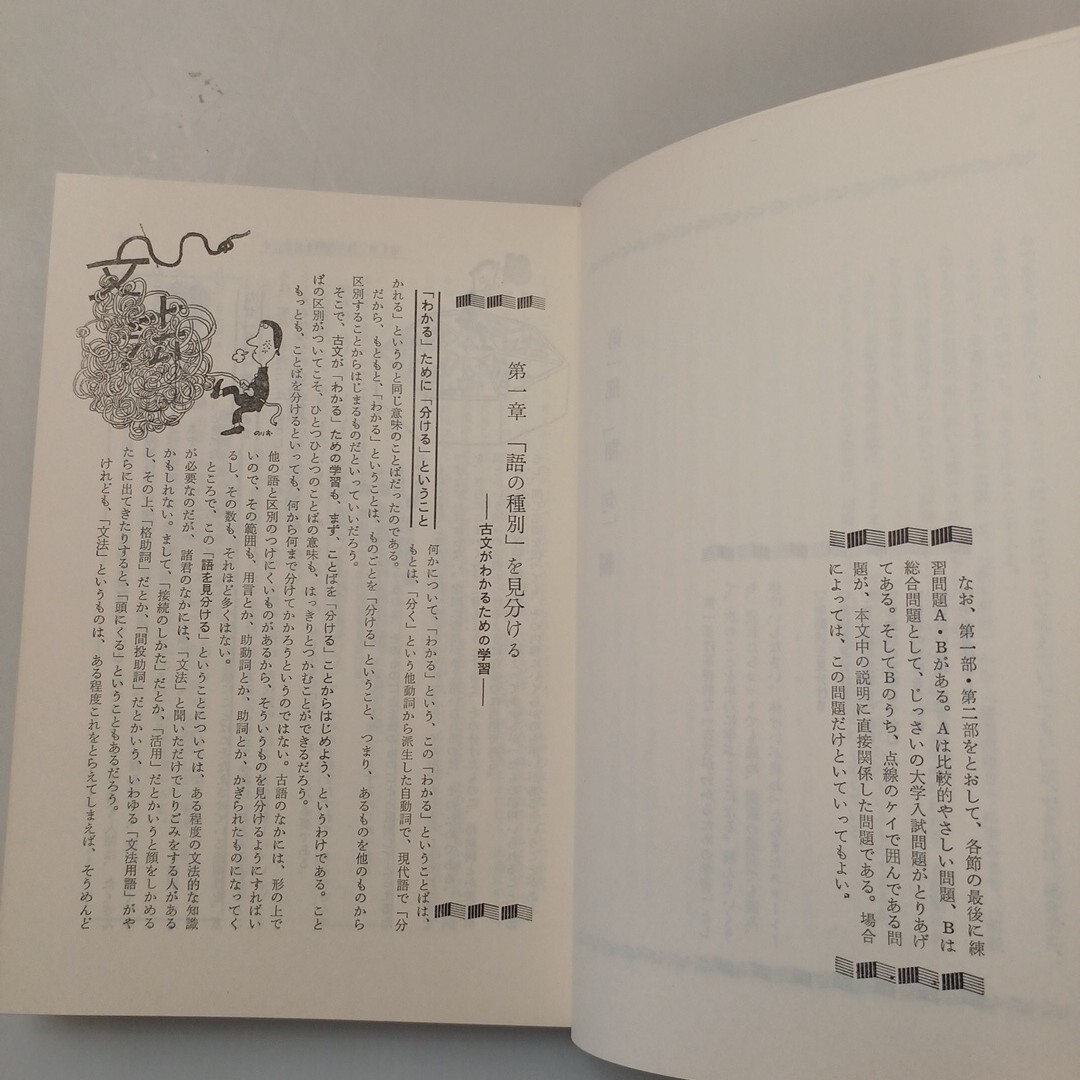 なお、第一部・第二部をとおして、各節の最後に練
習問題A・Bがある。Aは比較的やさしい問題、Bは
総合問題として、じっさいの大学入試問題がとりあげ
てある。そしてBのうち、点線のケイで囲んである問
題が、本文中の説明に直接関係した問題である。場合
によっては、この問題だけといっていってもよい。
第一章 「語の種別」を見分ける
――古文がわかるための学習――
「わかる」ために「分ける」ということ
何かについて、「わかる」という、この「わかる」ということばは、
もとは、「分く」という他動詞から派生した自動詞で、現代語で「分
かれる」というのと同じ意味のことばだったのである。
だから、もともと、「わかる」ということは、ものごとを「分ける」ということ、つまり、あるものを他のものから
区別することからはじまるものだといっていいだろう。
そこで、古文が「わかる」ための学習も、まず、ことばを「分ける」ことからはじめよう、というわけである。こと
ばの区別がついてこそ、ひとつひとつのことばの意味も、はっきりとつかむことができるだろう。
もっとも、ことばを分けるといっても、何から何まで分けてかかろうというのではない。古語のなかには、形の上で
他の語と区別のつけにくいものがあるから、そういうものを見分けるようにすればい
いので、その範囲も、用言とか、助動詞とか、助詞とか、かぎられたものになってく
るし、その数も、それほど多くはない。
ところで、この「語を見分ける」ということについては、ある程度の文法的な知識
が必要なのだが、諸君のなかには、「文法」と聞いただけでしりごみをする人がある
かもしれない。まして、「接続のしかた」だとか、「活用」だとかいうと顔をしかめる
し、その上、「格助詞」だとか、「間投助詞」だとかいう、いわゆる「文法用語」がや
たらに出てきたりすると、「頭にくる」ということもあるだろう。
けれども、「文法」というものは、ある程度これをとらえてしまえば、そうめんど
文法